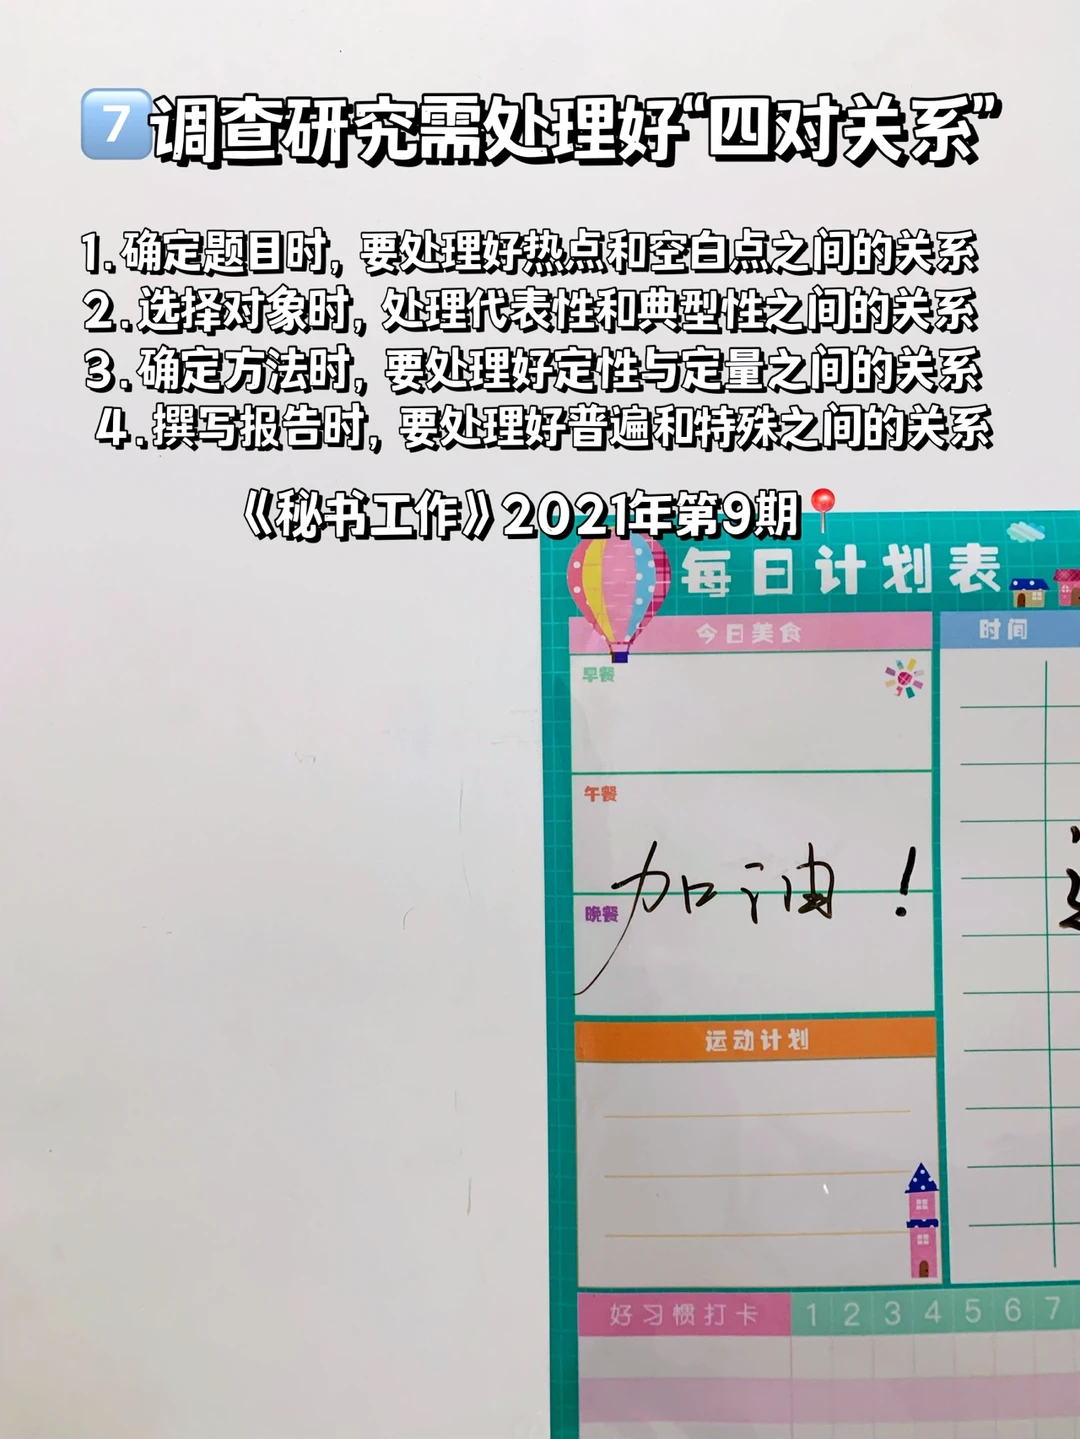 7调查研究需处理好“四对关系”
1.确定题目时，要处理好热点和空白点之间的关系
2.选择对象时，处理代表性和典型性之间的关系
3.确定方法时，要处理好定性与定量之间的关系
4.撰写报告时，要处理好普遍和特殊之间的关系
《秘书工作》2021年第9期
每日计划表
今日美食
时间
早餐
午餐
加油！
晚餐
运动计划
好习惯打卡 1 2 3 4 5 6 7